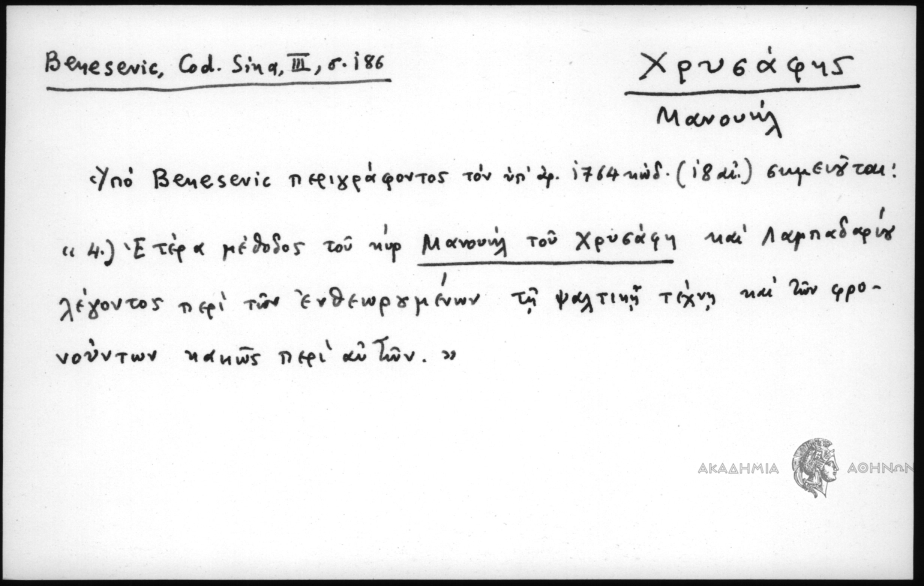 Benesevic, Cod. Sina, III, σ. 186
Χρυσάφης
Μανουήλ
Ὑπό Benesevic περιγράφοντος τόν ὑπ' ἀρ. 1764 κώδ. (18 αἰ.) σημειοῦται:
« 4.) Ἑτέρα μέθοδος τοῦ κύρ Μανουήλ τοῦ Χρυσάφη καί Λαμπαδαρίου
λέγοντος περί τῶν ἐνθεωρουμένων τῇ ψαλτικῇ τέχνῃ καί τῶν φρο-
νούντων κακῶς περί αὐτῶν. »
ΑΚΑΔΗΜΙΑ ΑΘΗΝΩΝ